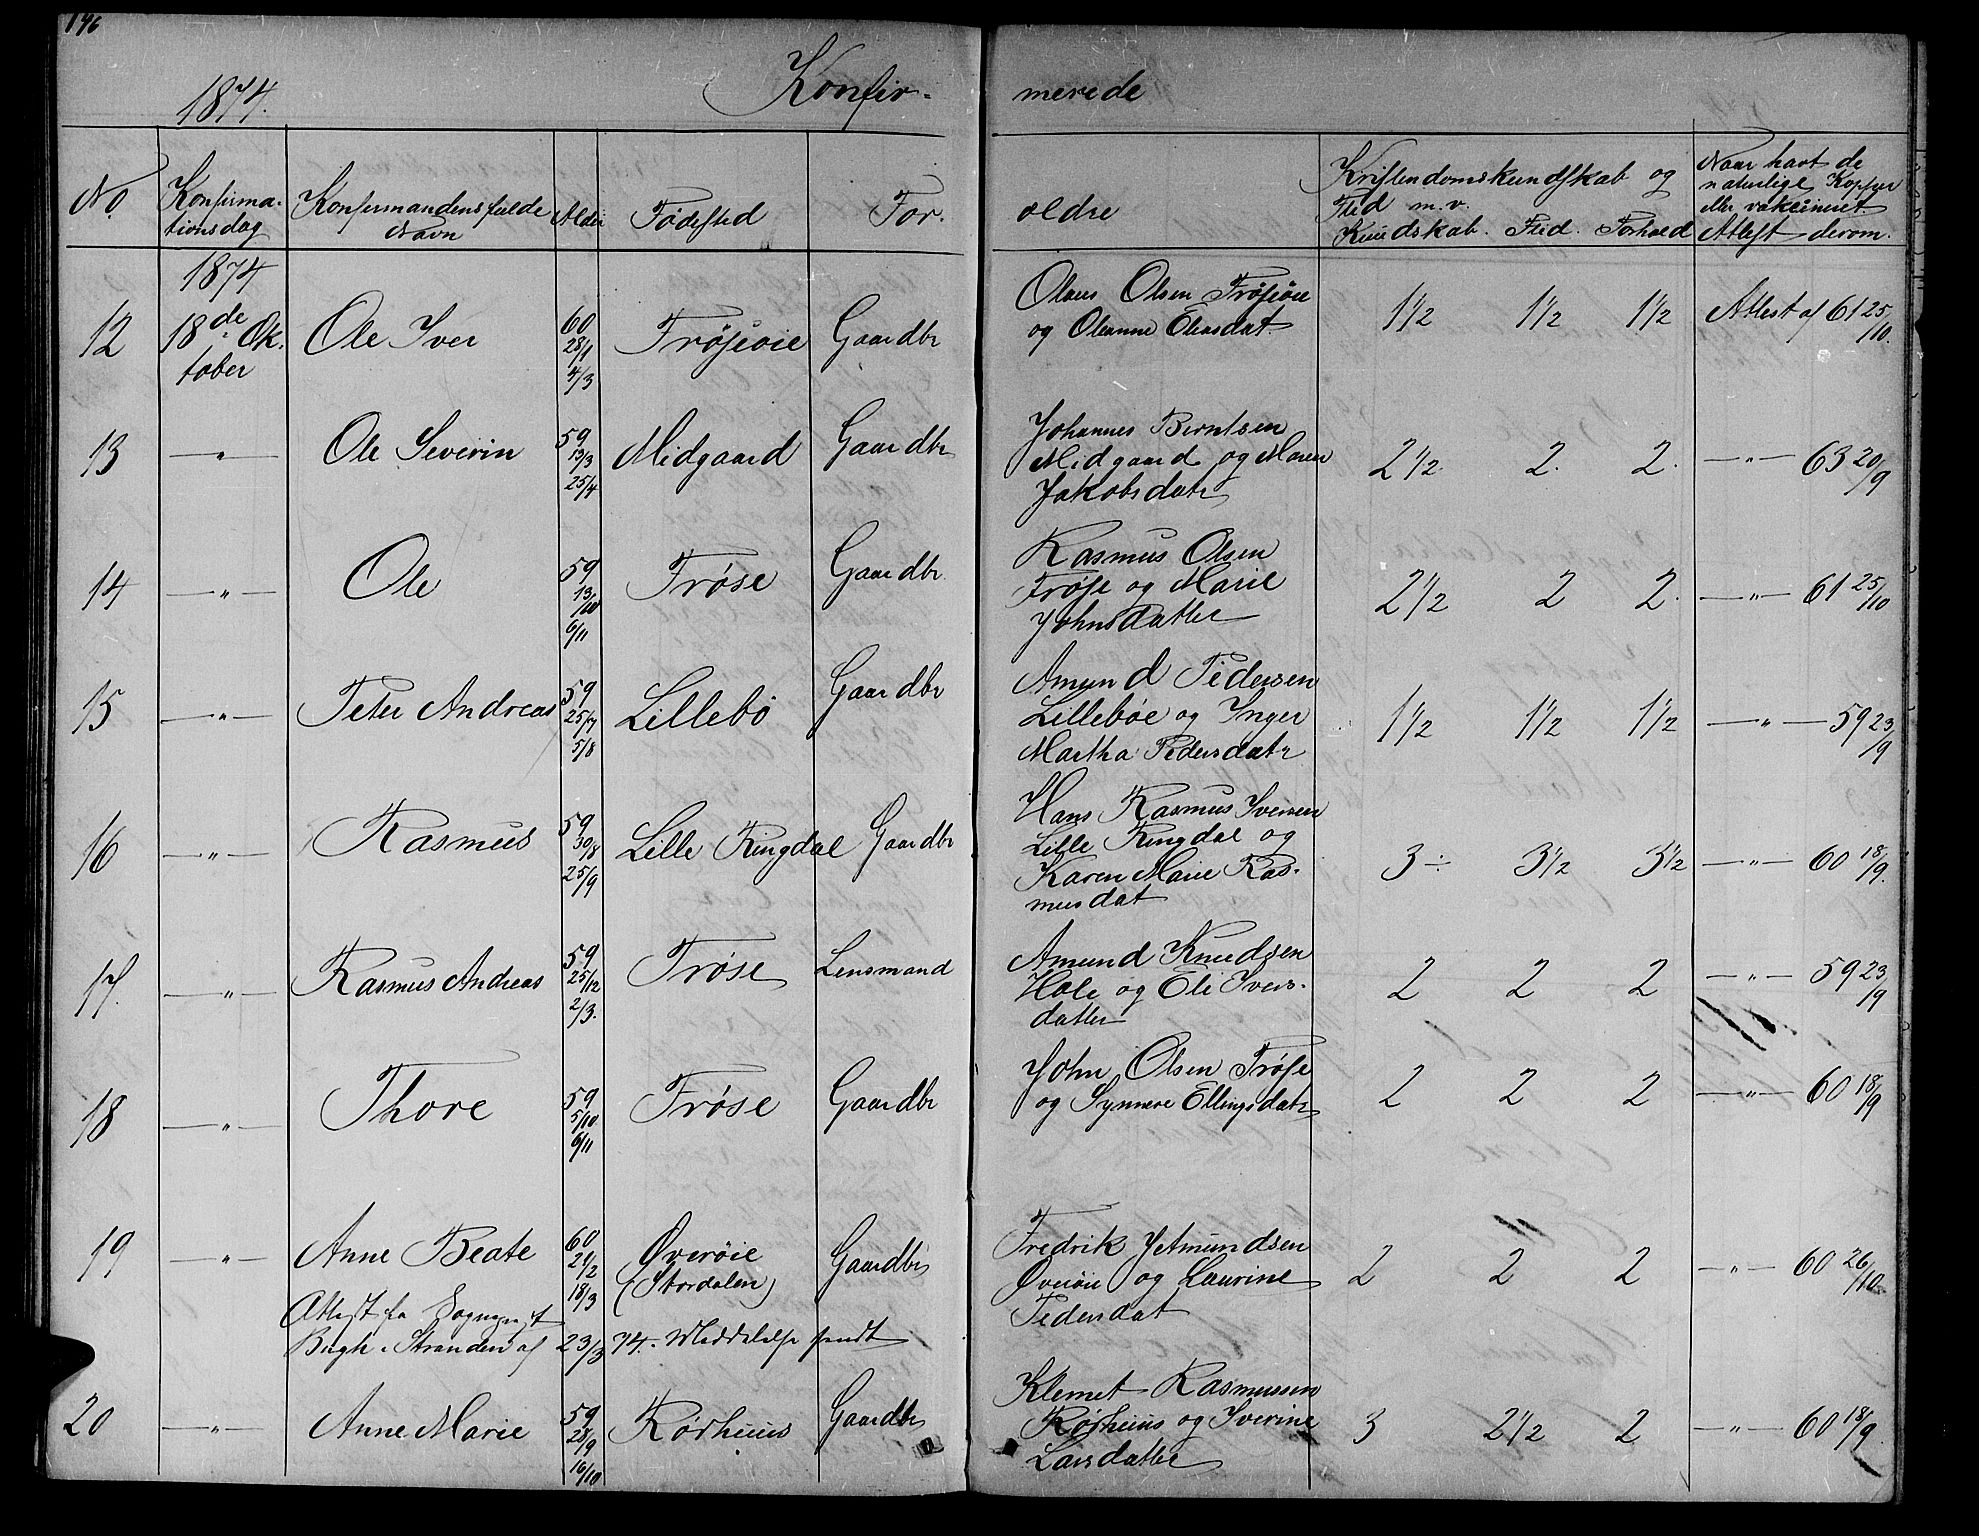 146
1874. Konfir- merede
No Konfirma- Konfirmandens fulde Alder Fødested For- ældre Kristendomskundskab og Naar havt de
tionsdag Navn Flid m.v. naturlige Kopper
Kundskab. Flid. Forhold eller vakcineret.
Attest derom.
1874
12 18de Ok- Ole Iver 60 Frøseøie Gaardbr Olaus Olsen Frøseøie 1½ 1½ 1½ Attest af 61 25/10.
tober 28/1 og Oleanne Eliasdat.
4/3
13 —"— Ole Severin 59 Midgaard Gaardbr Johannes Berntsen 2½ 2. 2. —"— 63 20/9
13/3 Midgaard og Maren
25/4 Jakobsdatr
14 —"— Ole 59 Frøse Gaardbr. Rasmus Olsen 2½ 2 2. —"— 61 25/10
13/10 Frøse og Marie
6/11 Johnsdatter
15 —"— Peter Andreas 59 Lillebø Gaardbr Amund Pedersen 1½ 1½ 1½ —"— 59 23/9
25/7 Lillebøe og Inger
5/8 Martha Pedersdatr
16 —"— Rasmus 59 Lille Ringdal Gaardbr Hans Rasmus Iversen 3÷ 3½ 3½ —"— 60 18/9.
30/8 Lille Ringdal og
25/9 Karen Marie Ras-
musdat
17. —"— Rasmus Andreas 59 Frøse Lensmand Amund Knudsen 2 2 2 —"— 59 23/9
25/12 Hole og Eli Ivers-
2/3. datter
18 —"— Thore 59 Frøse Gaardbr John Olsen Frøse 2 2 2 —"— 60 18/9
5/10 og Synnøve Ellingsdatr
6/11
19 —"— Anne Beate 60 Øverøie Gaardbr Fredrik Jetmundsen 2 2 2 —"— 60 26/10.
21/2 (Stordalen) Øverøie og Laurine
18/3 Pedersdat
Attest fra Sognepræst
Bugge i Stranden af 23/3 74. Meddelelse sendt
20 —"— Anne Marie 59 Rørhuus Gaardbr Klemet Rasmussen 3 2½ 2 —"— 60 18/9.
28/9 Rørhuus og Iverine
16/10 Larsdatter